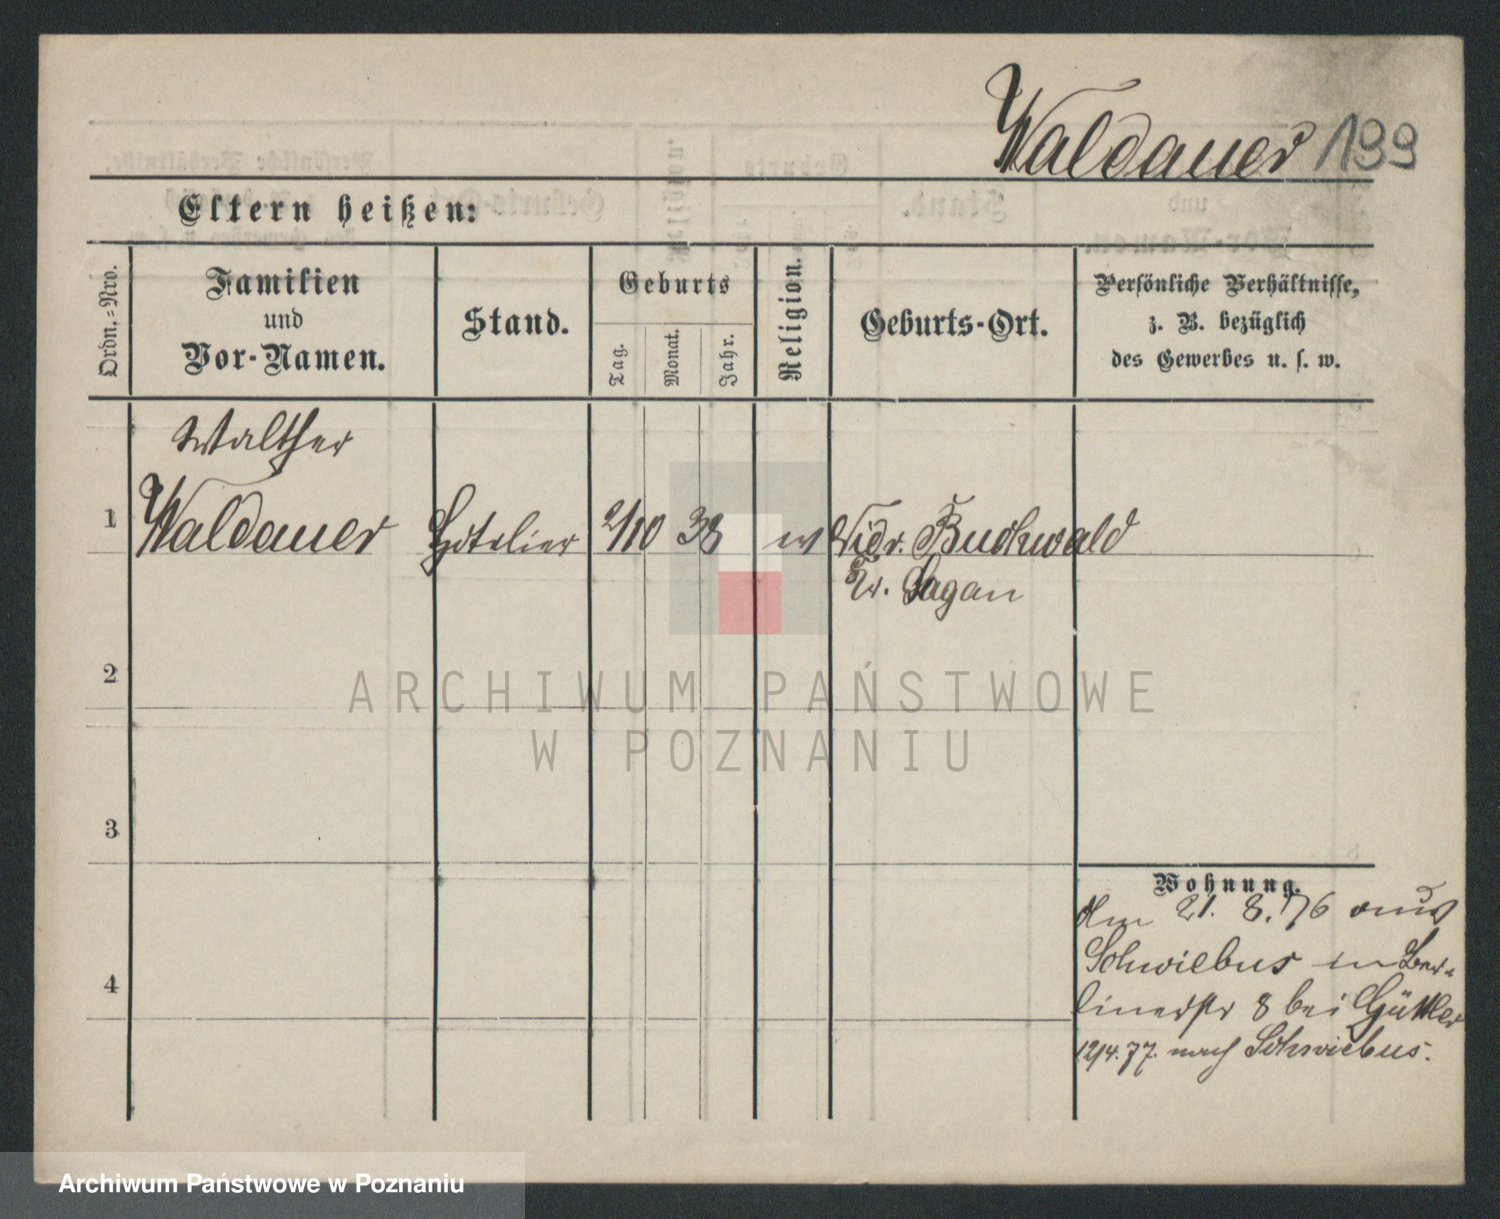 Waldauer 199
Eltern heißen:
Ordn.-Nro.
Familien
und
Vor-Namen.
Stand.
Geburts
Tag.
Monat.
Jahr.
Religion.
Geburts-Ort.
Persönliche Verhältnisse,
z. B. bezüglich
des Gewerbes u. s. w.
Walther
1 Waldauer Hotelier 2/10 38 Ndr. Buchwald
Kr. Sagan
2
3
4
Wohnung.
Am 21. 8. 76 aus
Schwiebus in Ber-
linerstr 8 bei Güttler
12/4. 77. nach Schwiebus.
ARCHIWUM PAŃSTWOWE
W POZNANIU
Archiwum Państwowe w Poznaniu